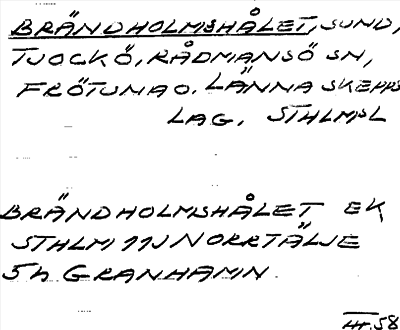 BRÄNDHOLMSHÅLET, SUND,
TJOCKÖ, RÅDMANSÖ SN,
FRÖTUNA O. LÄNNA SKEPPS
LAG, STHLMSL
BRÄNDHOLMSHÅLET EK
STHLM 11J NORRTÄLJE
5h GRANHAMN
III.58